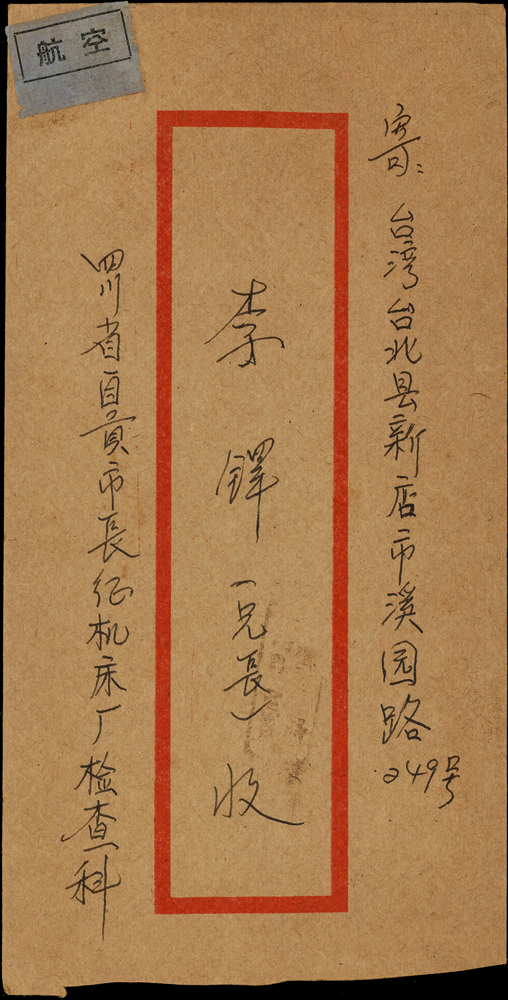 航空
寄：台湾台北县新店市溪园路249号
李铎（兄長）收
四川省自贡市長征机床厂检查科